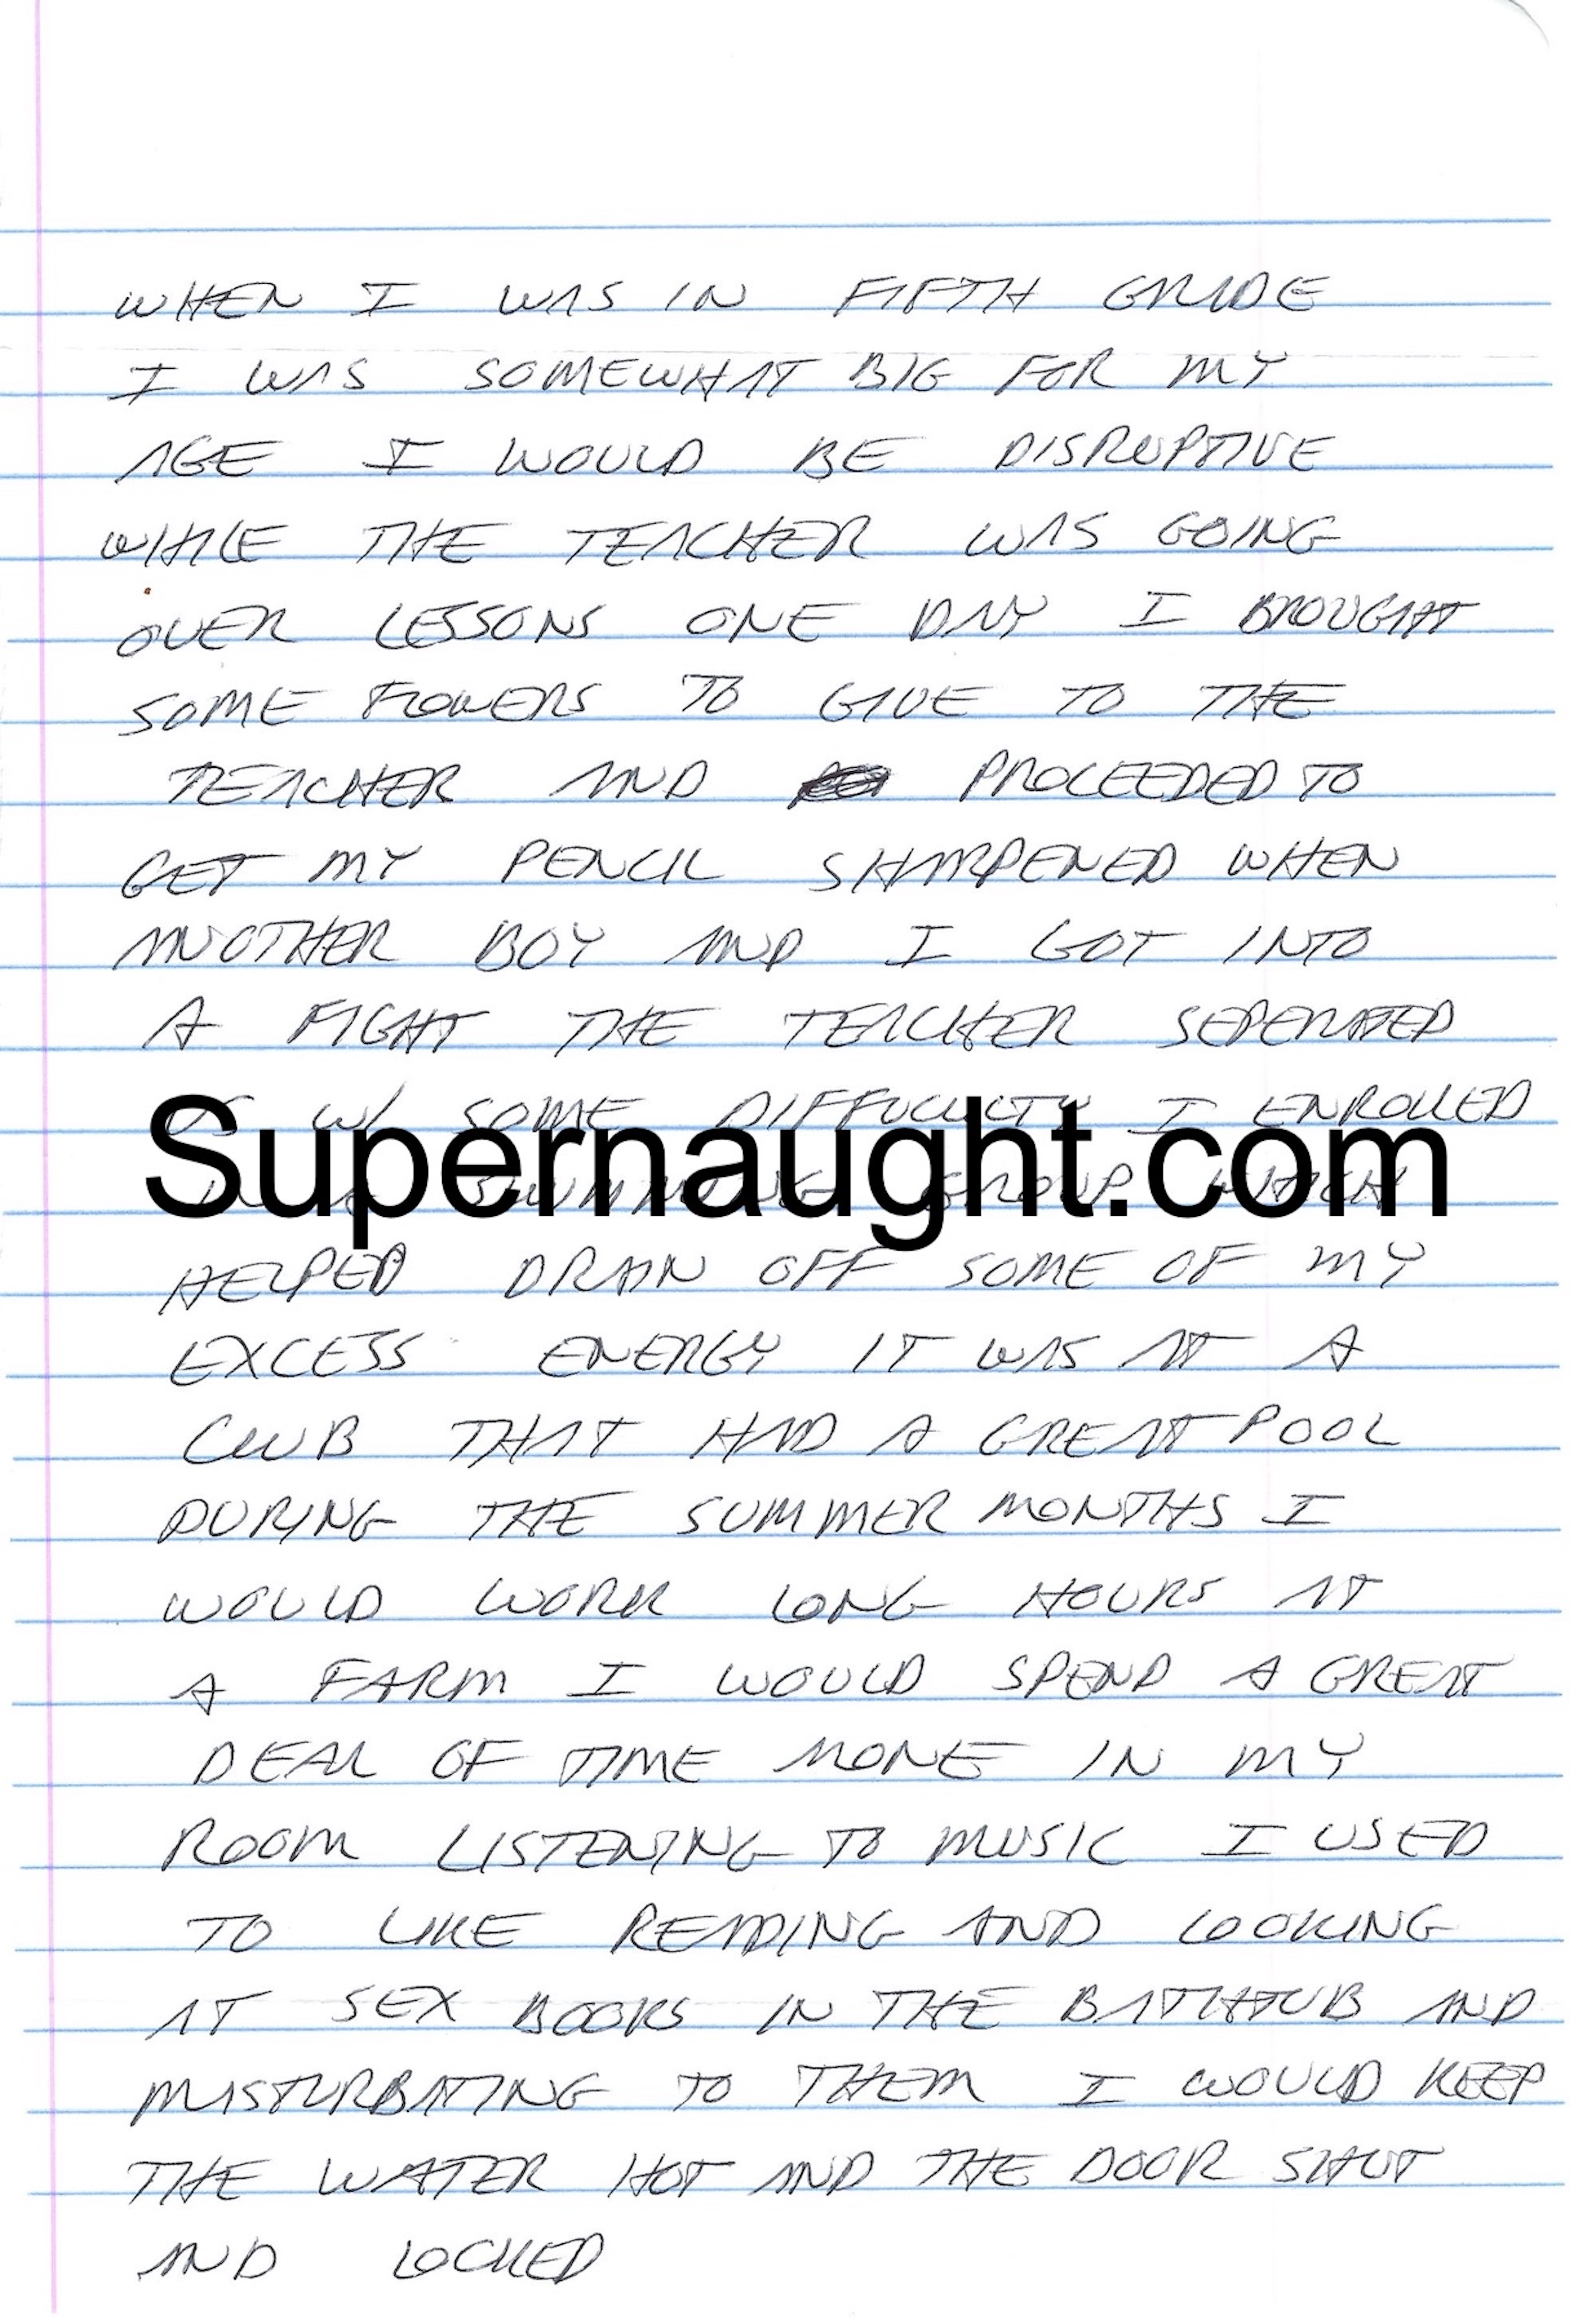 WHEN I WAS IN FIFTH GRADE
I WAS SOMEWHAT BIG FOR MY
AGE I WOULD BE DISRUPTIVE
WHILE THE TEACHER WAS GOING
OVER LESSONS ONE DAY I BROUGHT
SOME FLOWERS TO GIVE TO THE
TEACHER AND PROCEEDED TO
GET MY PENCIL SHARPENED WHEN
ANOTHER BOY AND I GOT INTO
A FIGHT THE TEACHER SEPERATED
US W/ SOME DIFFUCULTY I ENROLLED
Supernaught.com
IN A SWIMMING GROUP WHICH
HELPED DRAIN OFF SOME OF MY
EXCESS ENERGY IT WAS AT A
CLUB THAT HAD A GREAT POOL
DURING THE SUMMER MONTHS I
WOULD WORK LONG HOURS AT
A FARM I WOULD SPEND A GREAT
DEAL OF TIME ALONE IN MY
ROOM LISTENING TO MUSIC I USED
TO LIKE READING AND LOOKING
AT SEX BOOKS IN THE BATHTUB AND
MASTURBATING TO THEM I WOULD KEEP
THE WATER HOT AND THE DOOR SHUT
AND LOCKED